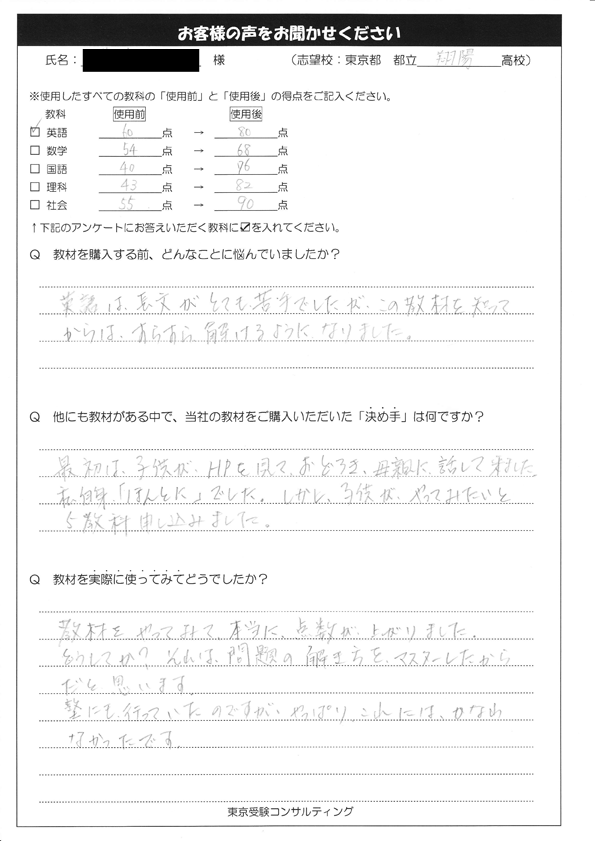 お客様の声をお聞かせください
氏名： 様 （志望校：東京都 都立 翔陽 高校）
※使用したすべての教科の「使用前」と「使用後」の得点をご記入ください。
教科 使用前 使用後
☑ 英語 60 点 → 80 点
□ 数学 54 点 → 68 点
□ 国語 40 点 → 96 点
□ 理科 43 点 → 82 点
□ 社会 55 点 → 90 点
↑下記のアンケートにお答えいただく教科に☑を入れてください。
Q 教材を購入する前、どんなことに悩んでいましたか？
英語は、長文がとても苦手でしたが、この教材を知って
からは、すらすら解けるようになりました。
Q 他にも教材がある中で、当社の教材をご購入いただいた「決め手」は何ですか？
最初は、子供が、HPを見て、おどろき、母親に、話して来ました。
私自身、「ほんとに」でした。しかし、子供が、やってみたいと
5教科申し込みました。
Q 教材を実際に使ってみてどうでしたか？
教材を、やってみて、本当に、点数が、上がりました。
どうしてか？それは、問題の解き方を、マスターしたから
だと思います。
塾にも、行っていたのですが、やっぱり、これには、かなわ
なかったです。
東京受験コンサルティング